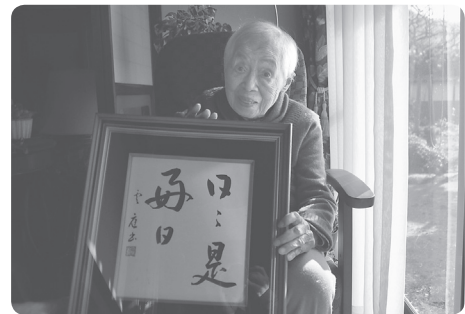 日〻是
好日